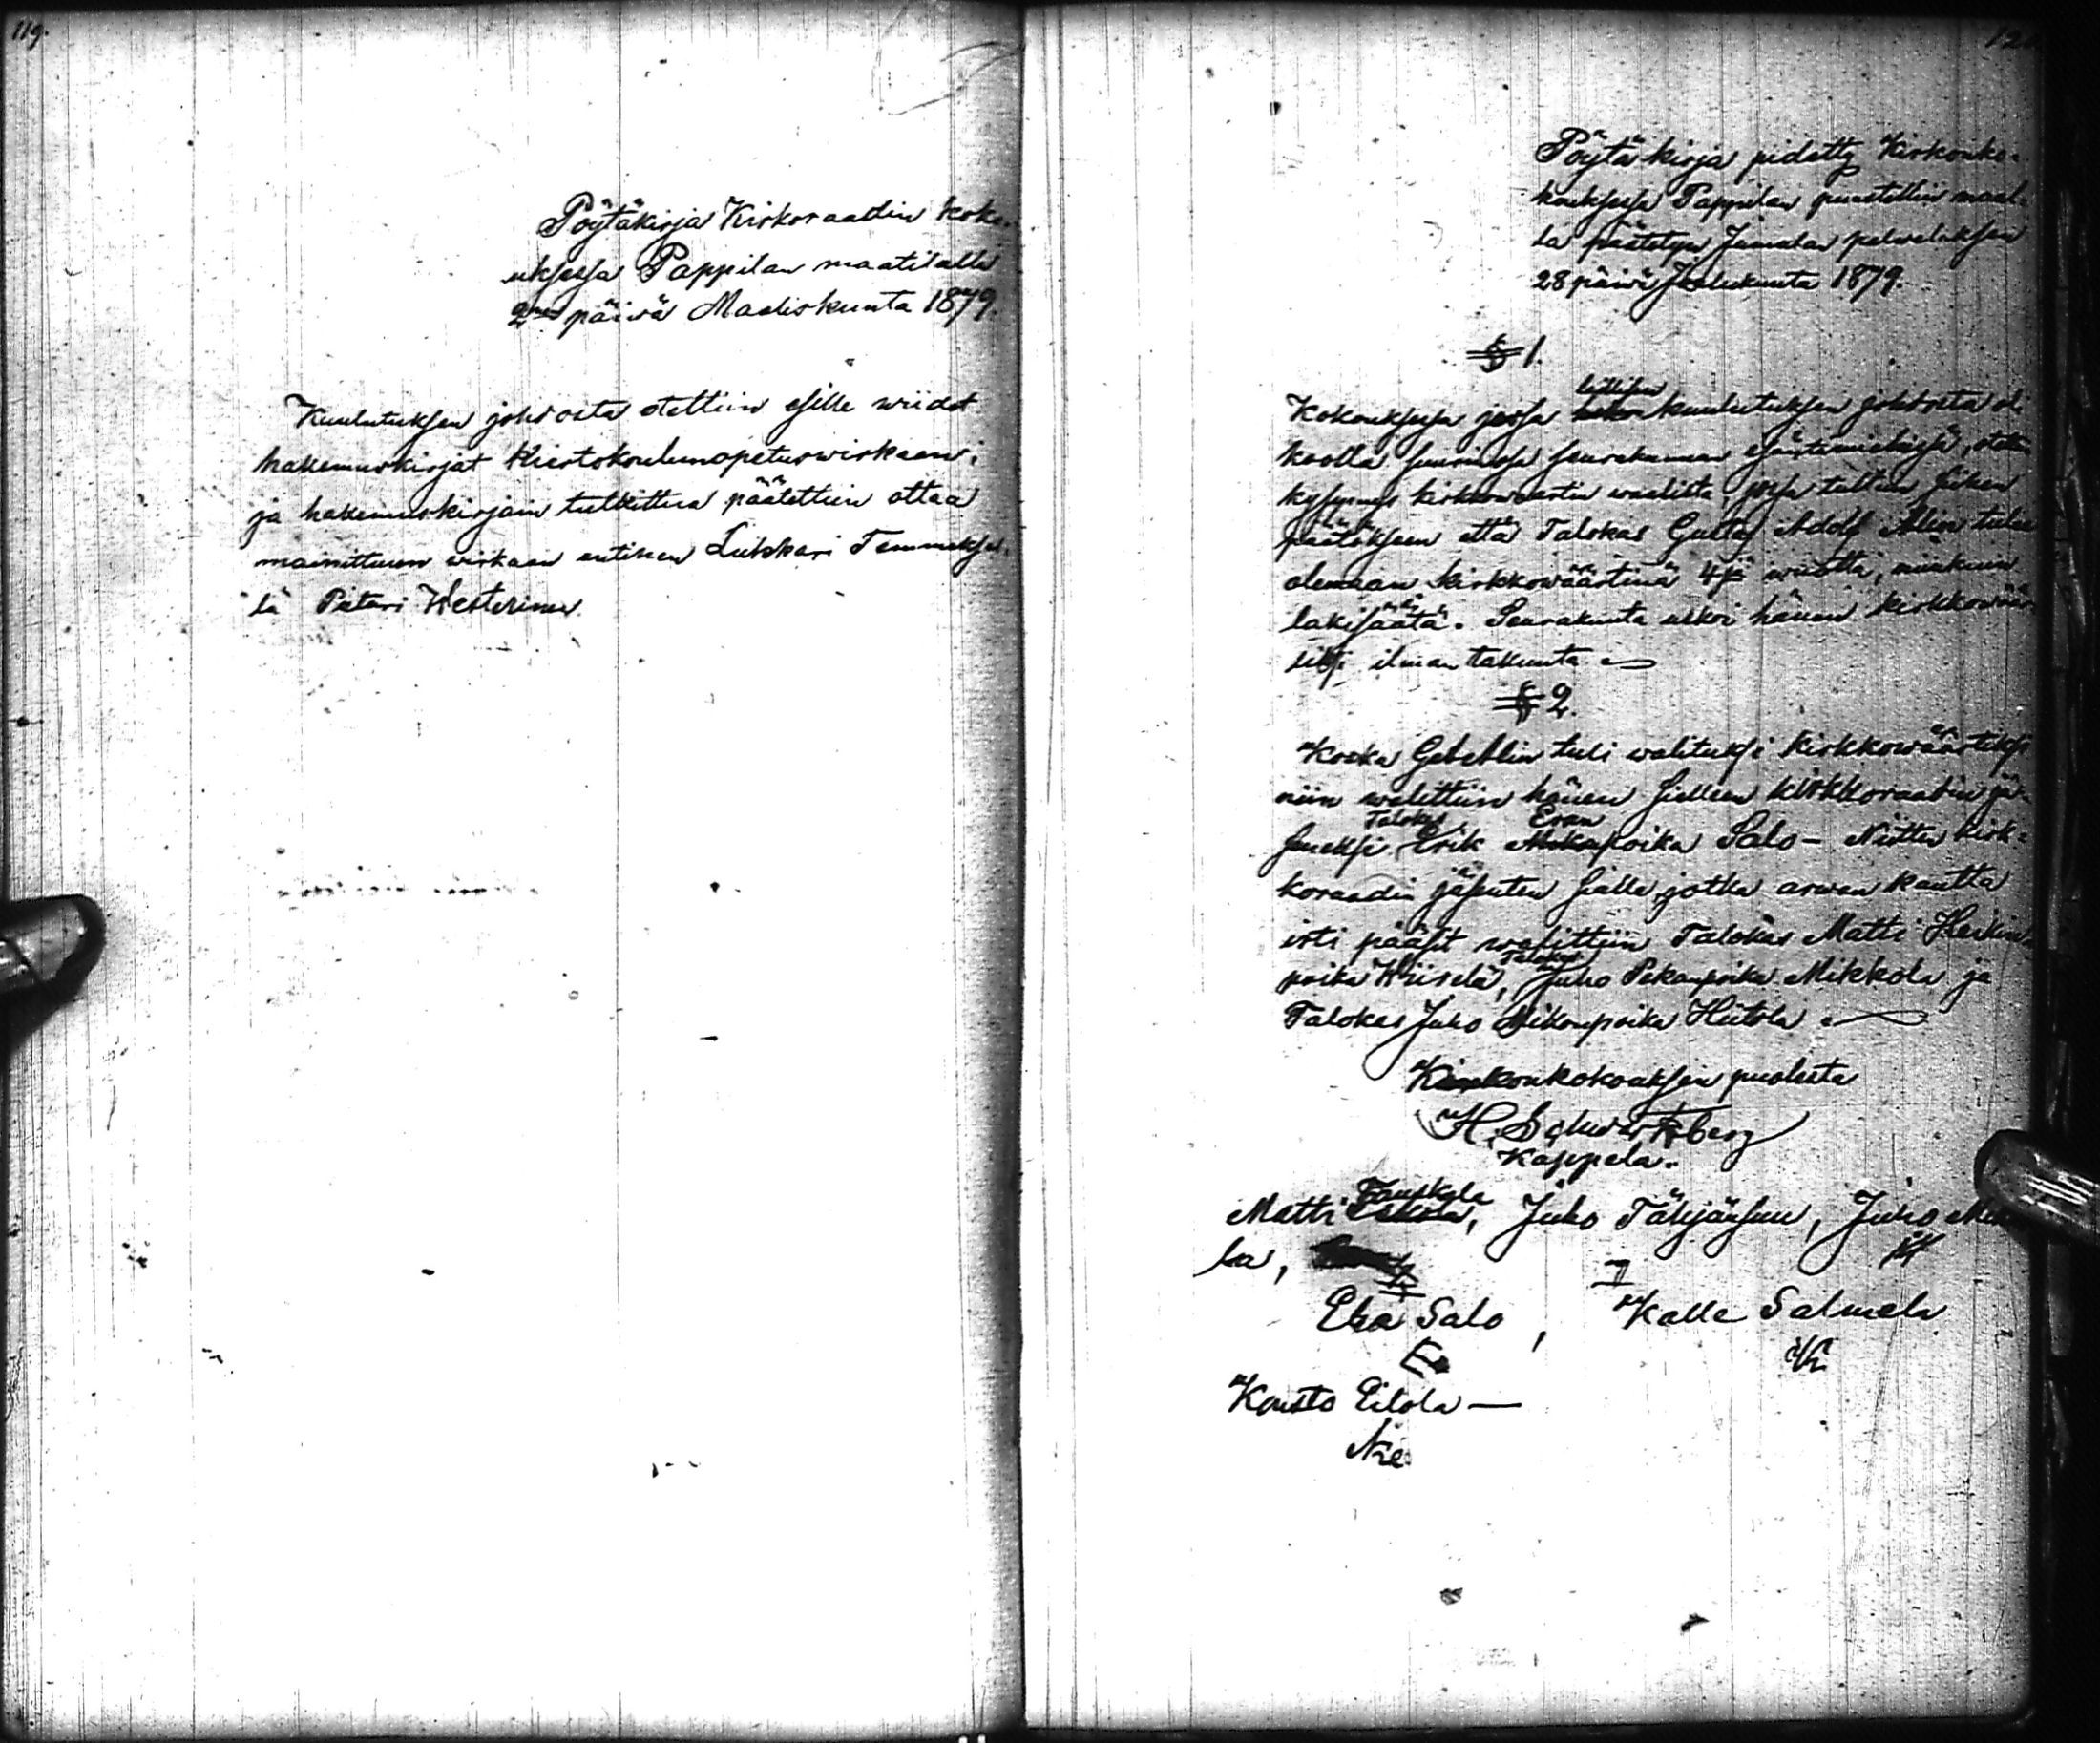 119.
Pöytäkirja Kirkoraadin koko-
uksessa Pappilan maatilalla
2nen päivä Maaliskuuta 1879.
Kuulutuksen johdosta otettiin esille wiidet
hakemuskirjat Kiertokoulunopetuswirkaan;
ja hakemuskirjain tutkittua päätettiin ottaa
mainittuun wirkaan entinen Lukkari Temmeksel-
lä Petari Westerinen.
120
Pöytäkirja pidetty Kirkonko-
kouksessa Pappilan puustellin maal-
la päätetyn Jumalan palweluksen
28 päiwä Joulukuuta 1879.
§ 1.
Kokouksessa jossa laillisen kuulutuksen johdosta ol.
koolla suurin osa seurakunnan isäntämiehistä, otettiin
kysymys kirkkowäärtin waalista jossa tultiin siihen
päätökseen että Talokas Gustaf Adolf Ahlin tulee
olemaan kirkkowäärtinä 4 wuotta, niinkuin
laki säätä. Seurakunta uskoi hänen kirkkowäär-
tiksi ilman takuuta
§ 2.
Koska Gst Ahlin tuli walituksi Kirkkowäärtiksi
niin walittiin hänen siallen kirkkoraadin jä-
Talokas Eran
seneksi Erik poika Salo – Niitten kirk-
koraadin jäsenten sialle jotka arwan kautta
irti pääsit walittiin Talokas Matti Heikin-
Talokas
poika Wiiselä, Juho Pekanpoika Mikkola ja
Talokas Juho Mikonpoika Hiitola
Kirkonkokouksen puolesta
H. Schwartzberg
Kappela..
Matti , Juho Tähjänsuu, Juho Mik
la,
Eka Salo, Kalle Salmela
Kousto Eilola —